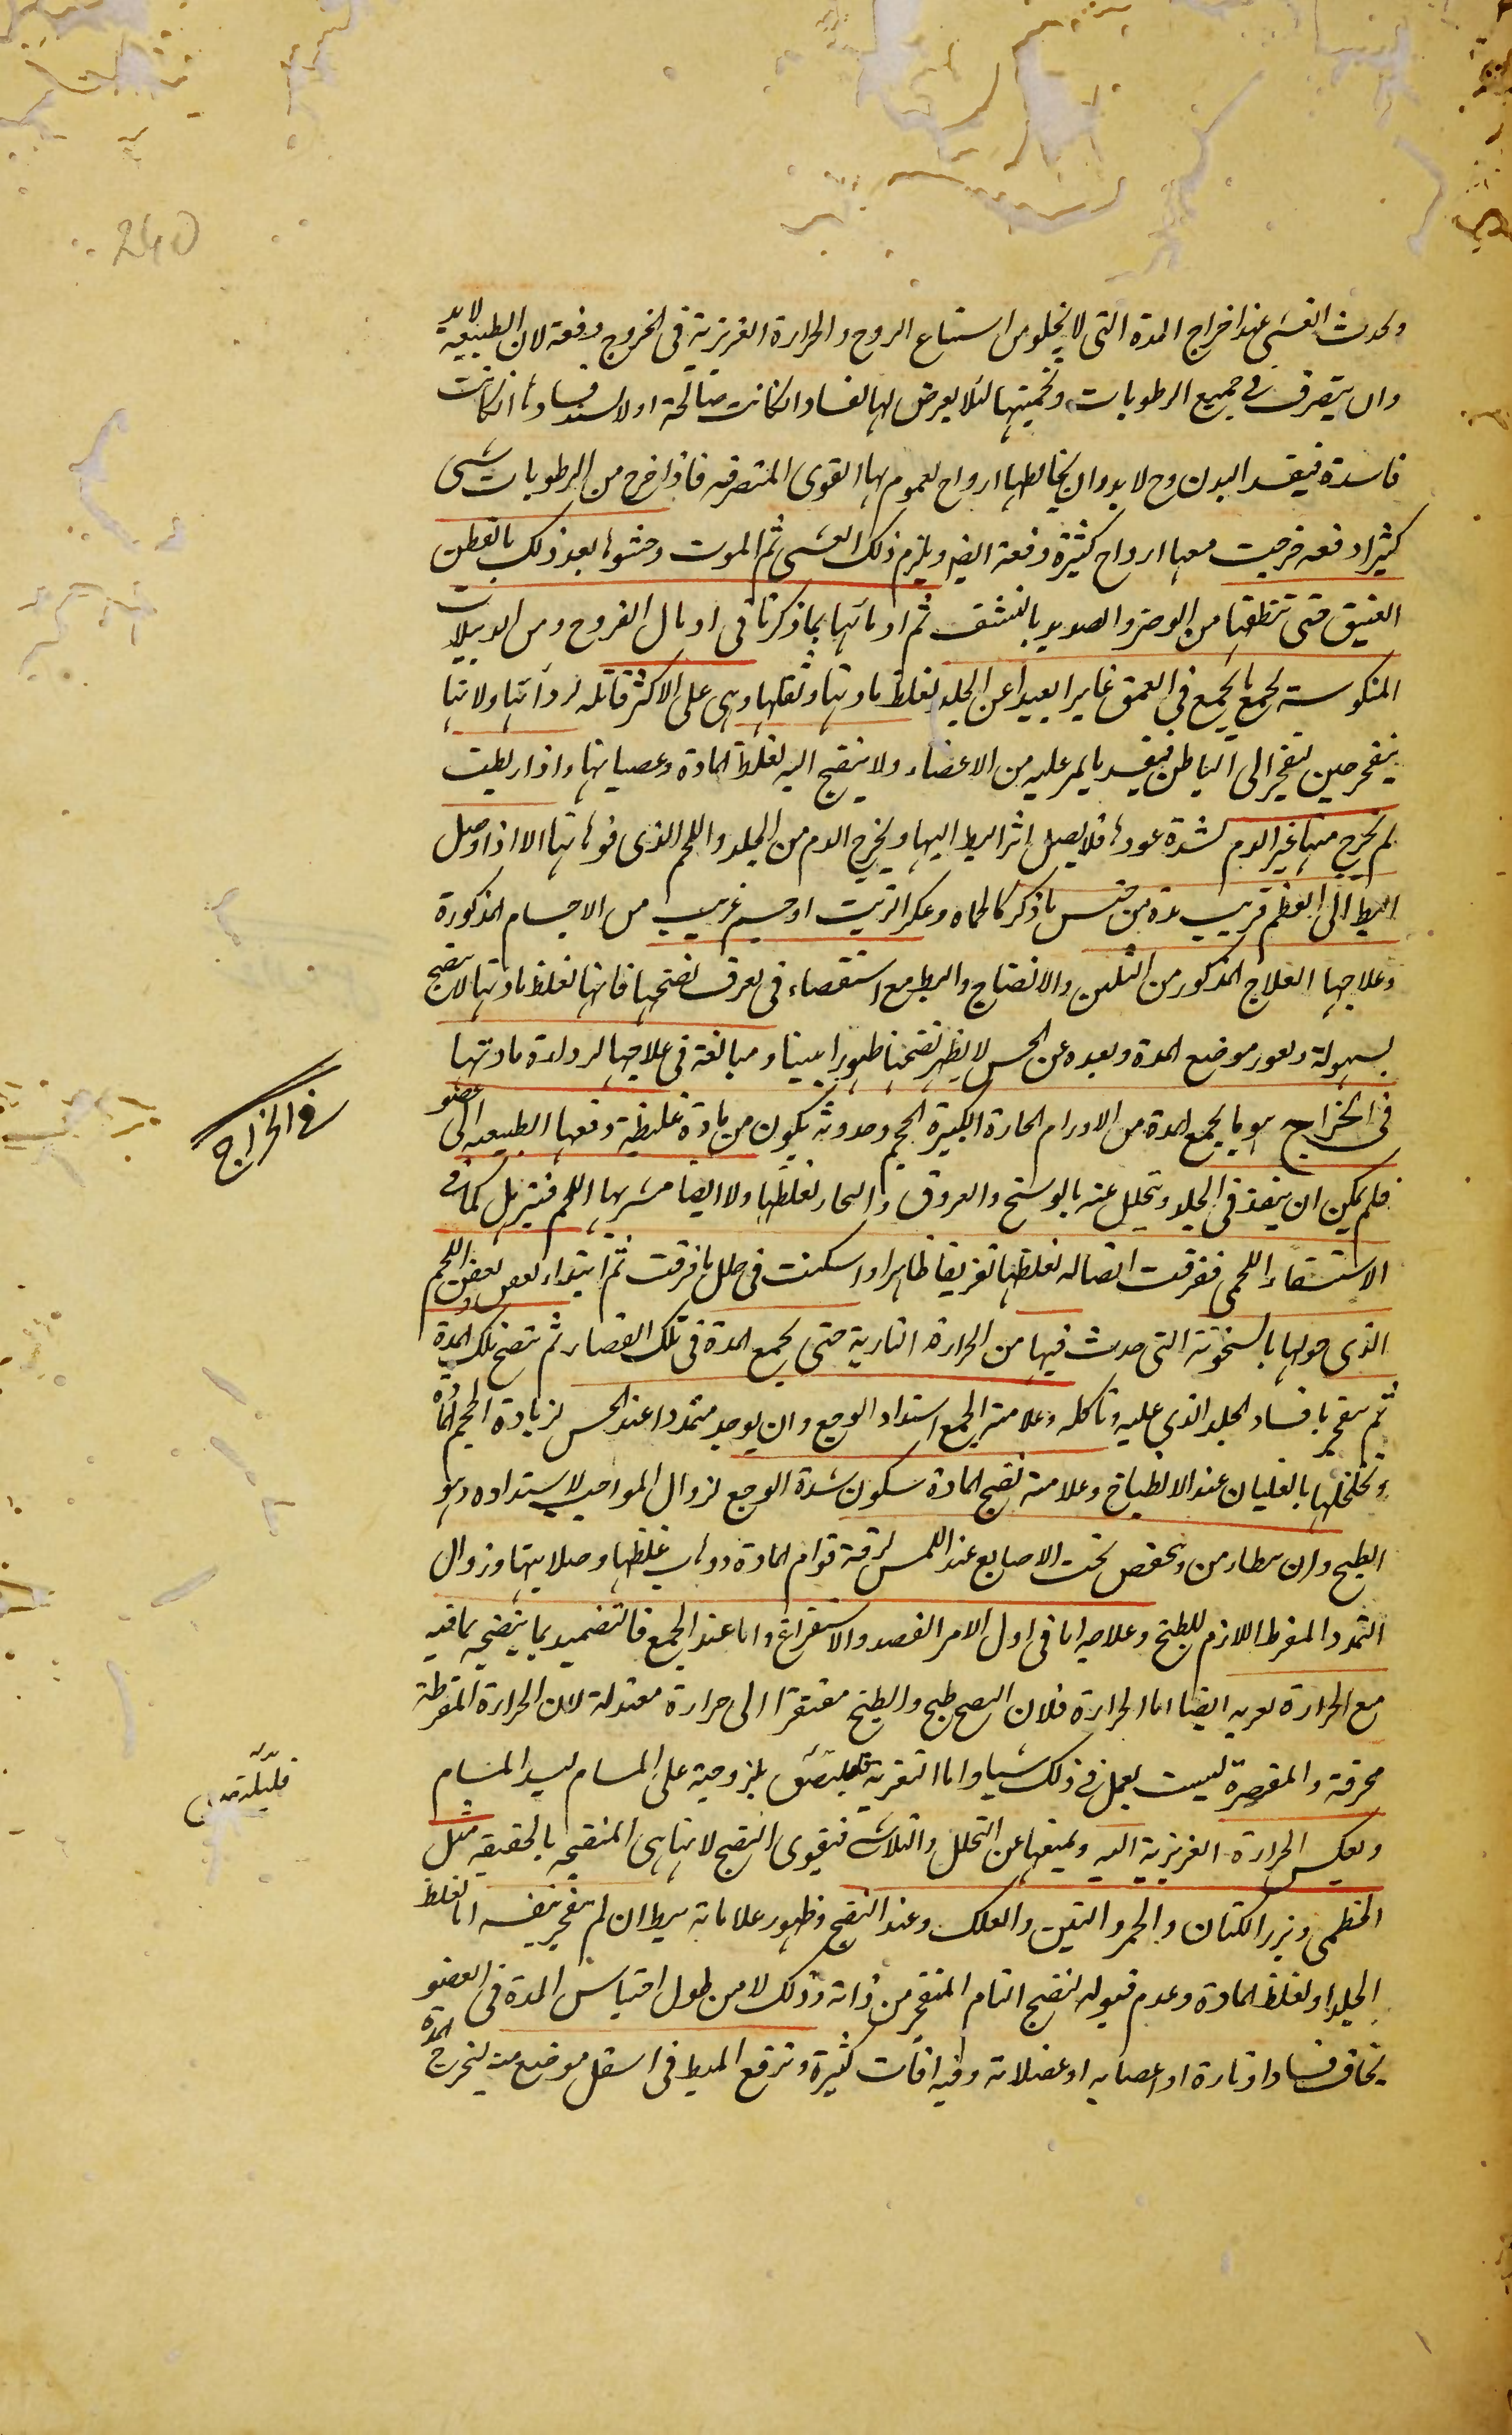 240
ويحدث الغشى عند اخراج المدة التى لا يخلو من استتباع الروح والحرارة الغريزية فى الخروج دفعة لان الطبيعة لابد
وان يتصرف فى جميع الرطوبات وتحميتها لئلا يعرض لها الفساد ان كانت صالحة اولا يشتد فسادها ان كانت
فاسدة فيفسد البدن وح لابد وان يخالطها ارواح لعموم لها القوى المتصرفه فاذا خرج من الرطوبات شى
كثير ادفعه خرجت معها ارواح كثيرة دفعة ايضا ويلزم ذلك الغشى ثم الموت وحشوها بعد ذلك بالقطن
العتيق حتى تنظفها من الوضر والصديد بالنشف ثم ادمالها بما ذكرنا فى ادمال القروح ومن الدبيلات
المنكوسة يجمع ما يجمع فى العمق غايرا بعيدا عن الجلد لغلظ مادتها وثقلها وهى على الاكثر قاتله لردائتها ولانها
ينفجر حين تنفجر الى الباطن فيفسد ما يمر عليه من الاعضاء ولا ينضج اليه لغلظ المادة وعصيانها واذا بطت
لم يخرج منها غير الدم لشدة غورها فلا يصل اثر البط اليها ويخرج الدم من الجلد واللحم الذى فوقها الا اذا وصل
البط الى العظم قريب مدة من جنس ما ذكر كالحماه وعكر الزيت او جسم غريب من الاجسام المذكورة
وعلاجها العلاج المذكور من التليين والانضاج والبط مع استقصاء فى تعرف نضجها فانها لغلظ مادتها لا ينضج
بسهولة ولغور موضع المدة وبعده عن الحس لا يظهر نضجها ظهورا بينا ومبالغة فى علاجها لرداءة مادتها
فى الخراج هو ما يجمع المدة من الاورام الحارة الكبيرة الحجم وحدوثه يكون من مادة غليظة دفعها الطبيعه الى عضو
فلم يمكن ان ينفذ فى الجلد ويتحلل عنه بالوسخ والعروق والبخار لغلظها ولا ايضا مشربها اللحم فيترهل كما فى
الاستسقاء اللحمى ففرقت اتصاله لغلظها تفريقا ظاهرا واسكنت فى خلل ما فرقت ثم ابتداء بعض بعفن اللحم
الذى حولها بالسخونة التى حدث فيها من الحرارة النارية حتى يجمع المدة فى تلك الفضاء ثم ينضج تلك المدة
ثم ينفجر بافساد الجلد الذى عليه وتاكله وعلامة الجمع اشتداد الوجع وان يوجد متمددا عند الحس لزيادة الحجم المادة
وتخلخلها بالغليان عند الانطباخ وعلامة نضج المادة سكون شدة الوجع لزوال الموجب لاشتداده وهو
الطبخ وان يتطامن وينخفض تحت الاصابع عند اللمس لرقة قوام المادة وذهاب غلظها وصلابتها وزوال
التمدد المفرط اللازم للطبخ وعلاجه اما فى اول الامر الفصد والاستفراغ واما عند الجمع فالتضميد بما ينضجه مما فيه
مع الحرارة تغريه ايضا اما الحرارة فلان النضج طبخ والطبخ مفتقر الى حرارة معتدلة لان الحرارة المفرطة
محرقة والمقصرة ليست يعمل فى ذلك شيا واما التغرية فليلتصق بلزوجية على المسام ليسد المسام
ويعكس الحرارة الغريزية اليه ويمنعها عن التحلل والتلاشى فيقوى النضج لانها هى المنضجه بالحقيقه مثل
الخطمى وبزر الكتان والخمر والتين والعلك وعند النضج وظهور علاماته يبط ان لم ينفجر بنفسه اما لغلظ
الجلد او لغلظ المادة وعدم قبوله لنضج التام المنفجر من ذاته وذلك لا من طول احتباس المدة فى العضو
يخاف فساد اوتاره او اعصابه او عضلاته وفيه افات كثيرة وتوقع المبط فى اسفل موضع منه ليخرج المدة
فى الخراج